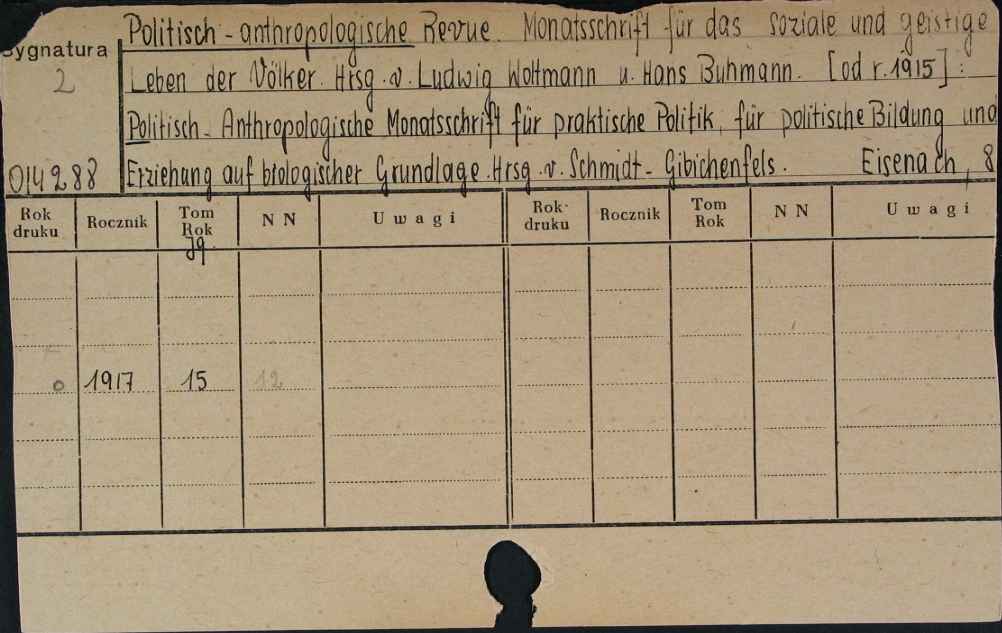 Sygnatura
2
014288
Politisch-anthropologische Revue. Monatsschrift für das soziale und geistige
Leben der Völker. Hrsg. v. Ludwig Woltmann u. Hans Buhmann. [od r. 1915]:
Politisch-Anthropologische Monatsschrift für praktische Politik, für politische Bildung und
Erziehung auf biologischer Grundlage. Hrsg. v. Schmidt-Gibichenfels. Eisenach, 8
Rok druku Rocznik Tom Rok NN Uwagi Rok druku Rocznik Tom Rok NN Uwagi
Jg
o 1917 15 12